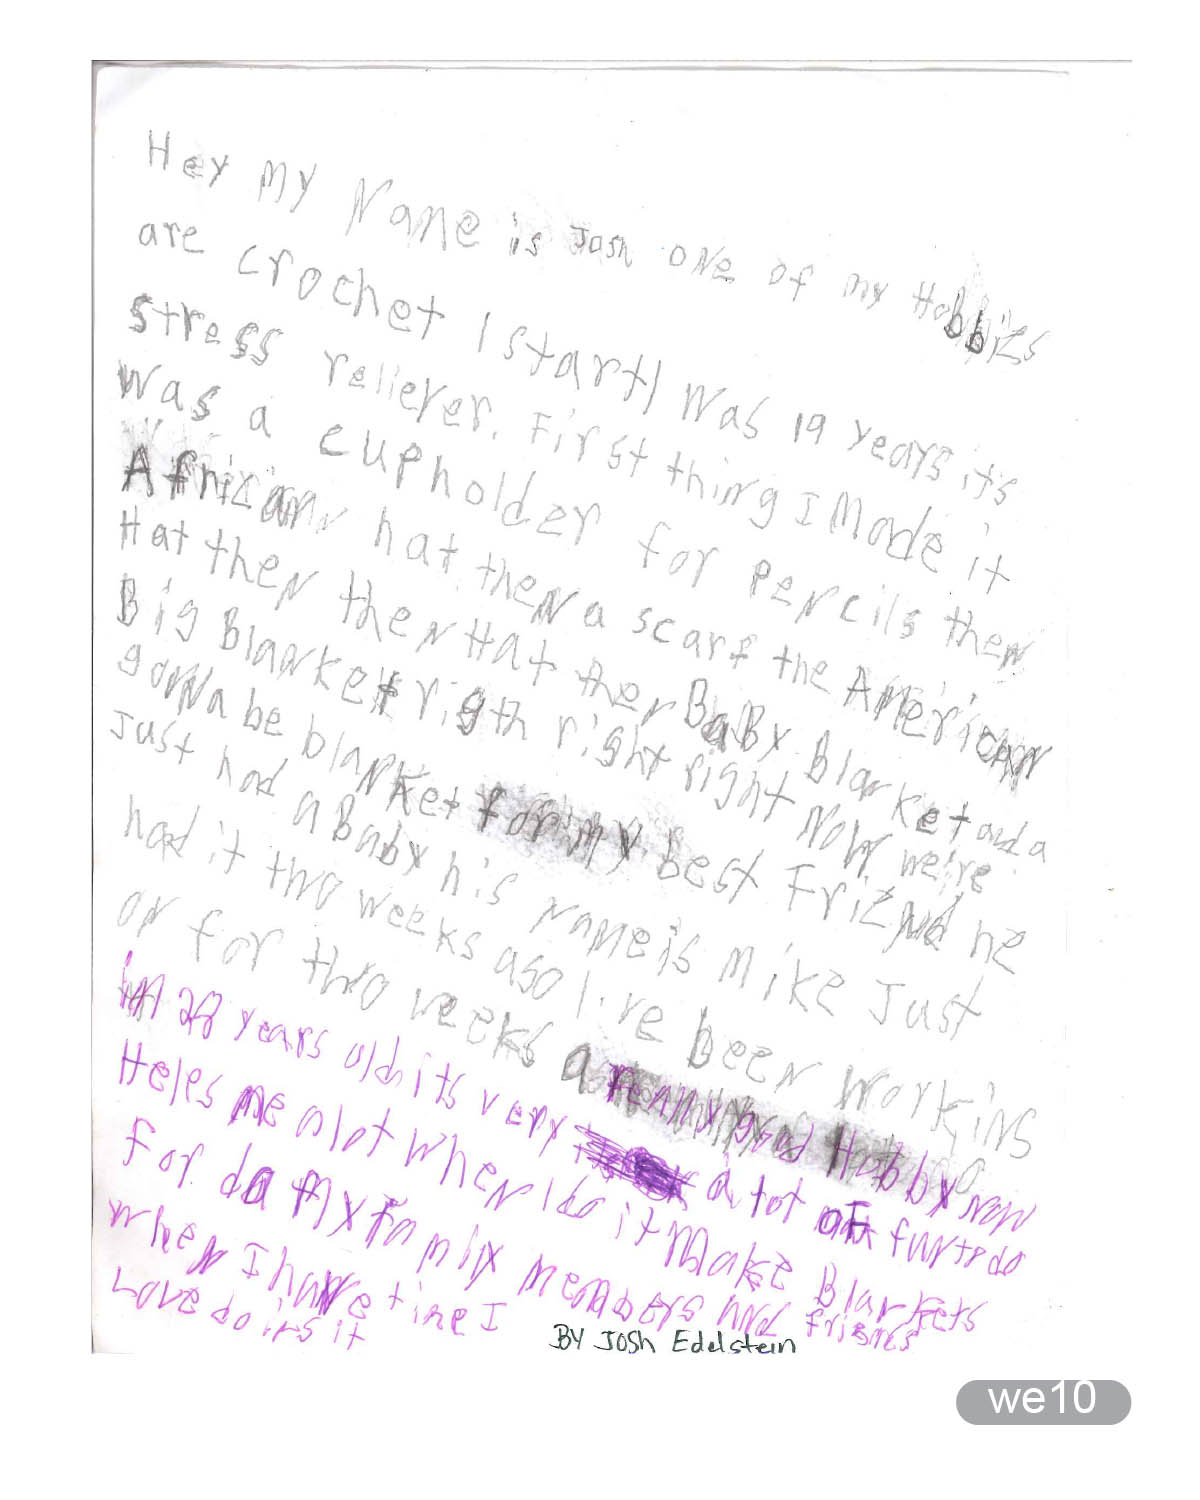 Hey my Name is Josh one of my Hobbies
are crochet I start I was 19 years it's
stress reliever. First thing I Made it
was a cupholder for pencils then
African hat then a scarf the American
Hat then then Hat then Baby Blanket and a
Big Blanket rigth right right Now we're
gonna be blanket for my best Friend he
Just had a Baby his name is Mike Just
had it two weeks ago I've been Working
on for two weeks a really good Hobby now
im 28 years old its very a lot of fun to do
Helps me a lot when I do it Make Blankets
For da My Family Members And friends
when I have time I
Love doing it
BY JOSh Edelstein
we10